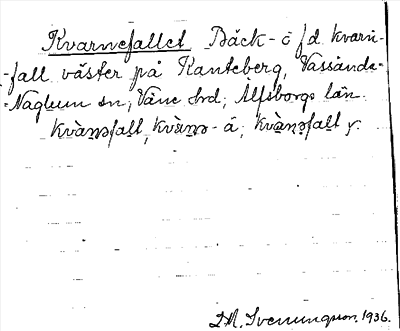 Kvarnefallet Bäck- o f.d. kvarn-
-fall väster på Kanteberg, Vassända-
-Naglum sn, Väne hrd, Älfsborgs län.
kvàn̠ɘfal̠t, kvàrn̠ɘ- å, kvàn̠ɘfal̠t y.
D.M. Svenungsson. 1936.